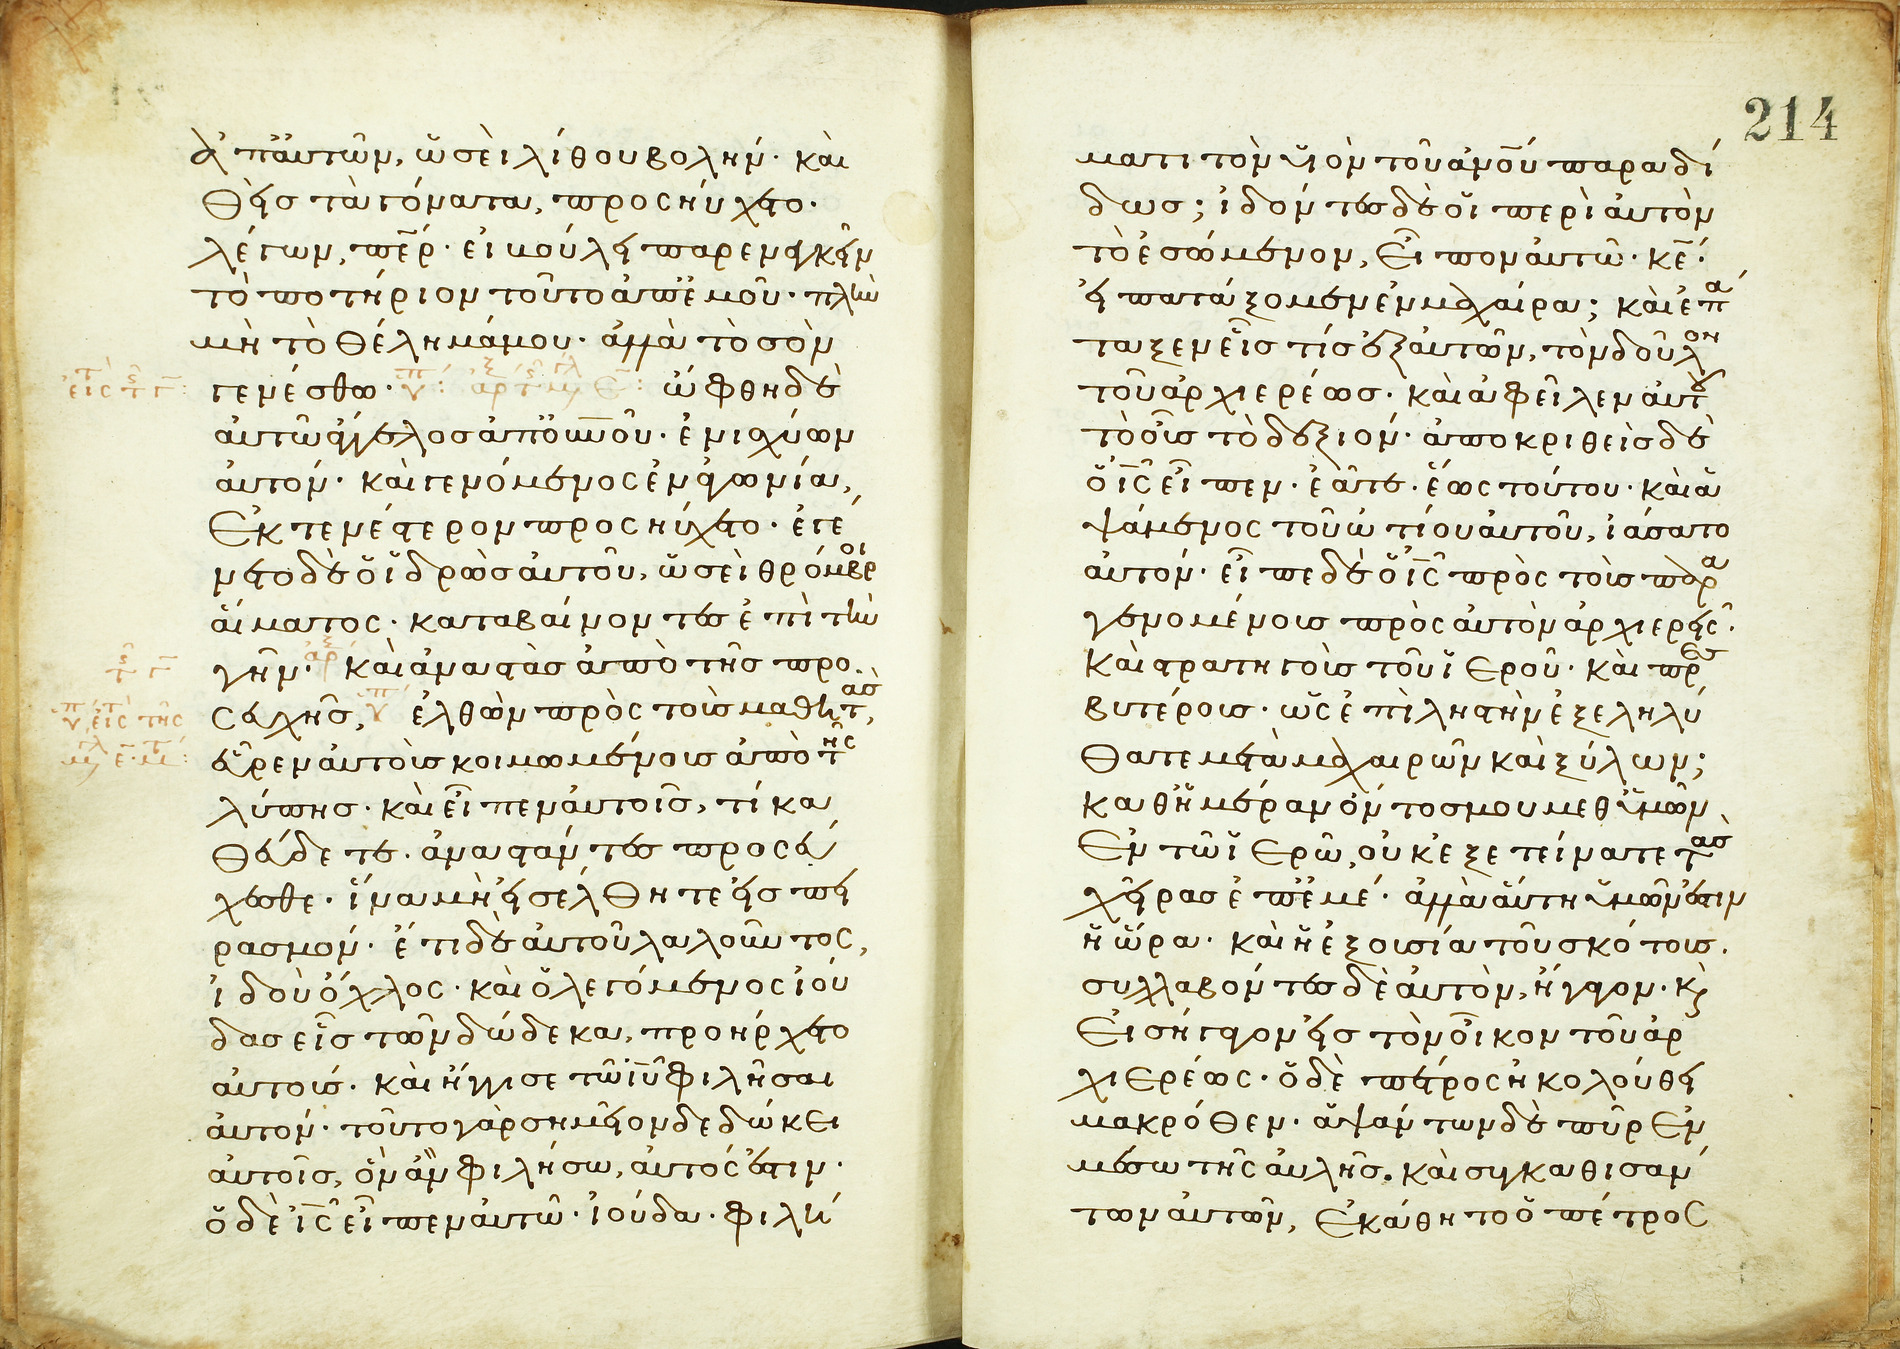 ἀπ' αὐτῶν, ὡσεὶ λίθου βολήν· καὶ
θεὶς τὰ γόνατα, προσηύχετο·
λέγων, π̅ε̅ρ· εἰ βούλει παρενεγκεῖν
τὸ ποτήριον τοῦτο ἀπ' ἐμοῦ· πλὴν
μὴ τὸ θέλημά μου· ἀλλὰ τὸ σὸν
γενέσθω· ὤφθη δὲ
αὐτῶ ἄγγελος ἀπ' ο̅υ̅ν̅οῦ· ἐνισχύων
αὐτόν· καὶ γενόμενος ἐν ἀγωνία,
ἐκτενέστερον προσηύχετο· ἐγέ
νετο δὲ ὁ ἱδρὼς αὐτοῦ, ὡσεὶ θρόμβοι
αἵματος· καταβαίνοντες ἐπὶ τὴν
γῆν· καὶ ἀναστὰς ἀπὸ τῆς προ
σευχῆς, ἐλθὼν πρὸς τοὺς μαθητὰς,
εὗρεν αὐτοὺς κοιμωμένους ἀπὸ τῆς
λύπης· καὶ εἶπεν αὐτοῖς, τί κα
θεύδετε· ἀναστάντες προσεύ
χεσθε· ἵνα μὴ εἰσέλθητε εἰς πει
ρασμόν· ἔτι δὲ αὐτοῦ λαλοῦντος,
ἰδοὺ ὄχλος· καὶ ὁ λεγόμενος ἰού
δας εἷς τῶν δώδεκα, προήρχετο
αὐτούς· καὶ ἤγγισε τῶ ι̅υ̅ φιλῆσαι
αὐτόν· τοῦτο γὰρ σημεῖον δεδώκει
αὐτοῖς, ὃν ἂν φιλήσω, αὐτός ἐστιν·
ὁ δὲ ι̅ς̅ εἶπεν αὐτῶ· ἰούδα· φιλή
214
ματι τὸν υἱὸν τοῦ α̅ν̅ο̅υ̅ παραδί
δως; ἰδόντες δὲ οἱ περὶ αὐτὸν
τὸ ἐσόμενον, εἶπον αὐτῶ· κ̅ε̅·
εἰ πατάξομεν ἐν μαχαίρα; καὶ ἐπά
ταξεν εἷς τίς ἐξ αὐτῶν, τὸν δοῦλον
τοῦ ἀρχιερέως· καὶ ἀφεῖλεν αὐτοῦ
τὸ οὖς τὸ δεξιόν· ἀποκριθεὶς δὲ
ὁ ι̅ς̅ εἶπεν· ἐᾶτε· ἕως τούτου· καὶ ἁ
ψάμενος τοῦ ὠτίου αὐτοῦ, ἰάσατο
αὐτόν· εἶπε δὲ ὁ ι̅ς̅ πρὸς τοὺς παρα
γενομένους πρὸς αὐτὸν ἀρχιερεῖς·
καὶ στρατηγοὺς τοῦ ἱεροῦ· καὶ πρεσ
βυτέρους· ὡς ἐπὶ ληστὴν ἐξεληλύ
θατε μετὰ μαχαιρῶν καὶ ξύλων;
καθ' ἡμέραν ὄντος μου μεθ' ὑμῶν
ἐν τῶ ἱερῶ, οὐκ ἐξετείνατε τὰς
χεῖρας ἐπ' ἐμέ· ἀλλὰ αὕτη ὑμῶν ἐστιν
ἡ ὥρα· καὶ ἡ ἐξουσία τοῦ σκότους.
συλλαβόντες δὲ αὐτὸν, ἤγαγον· κ̀
εἰσήγαγον εἰς τὸν οἶκον τοῦ ἀρ
χιερέως· ὁ δὲ πέτρος ἠκολούθει
μακρόθεν· ἁψάντων δὲ πῦρ ἐν
μέσω τῆς αὐλῆς. καὶ συγκαθισάν
των αὐτῶν, ἐκάθητο ὁ πέτρος